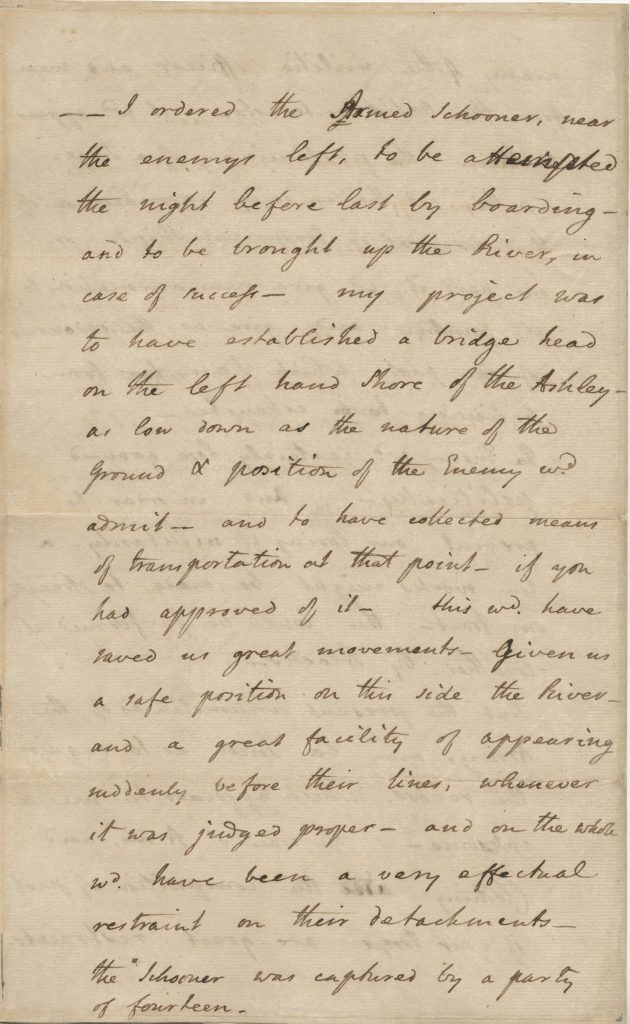 —— I ordered the Armed Schooner, near
the enemys left, to be attempted
the night before last by boarding —
and to be brought up the River, in
case of success — my project was
to have established a bridge head
on the left hand Shore of the Ashley —
as low down as the nature of the
Ground & position of the Enemy wd
admit — and to have collected means
of transportation at that point — if you
had approved of it — this wd. have
saved us great movements — Given us
a safe position on this side the River —
and a great facility of appearing
suddenly before their lines, whenever
it was judged proper — and on the whole
wd. have been a very effectual
restraint on their detachments —
the Schooner was captured by a party
of fourteen.